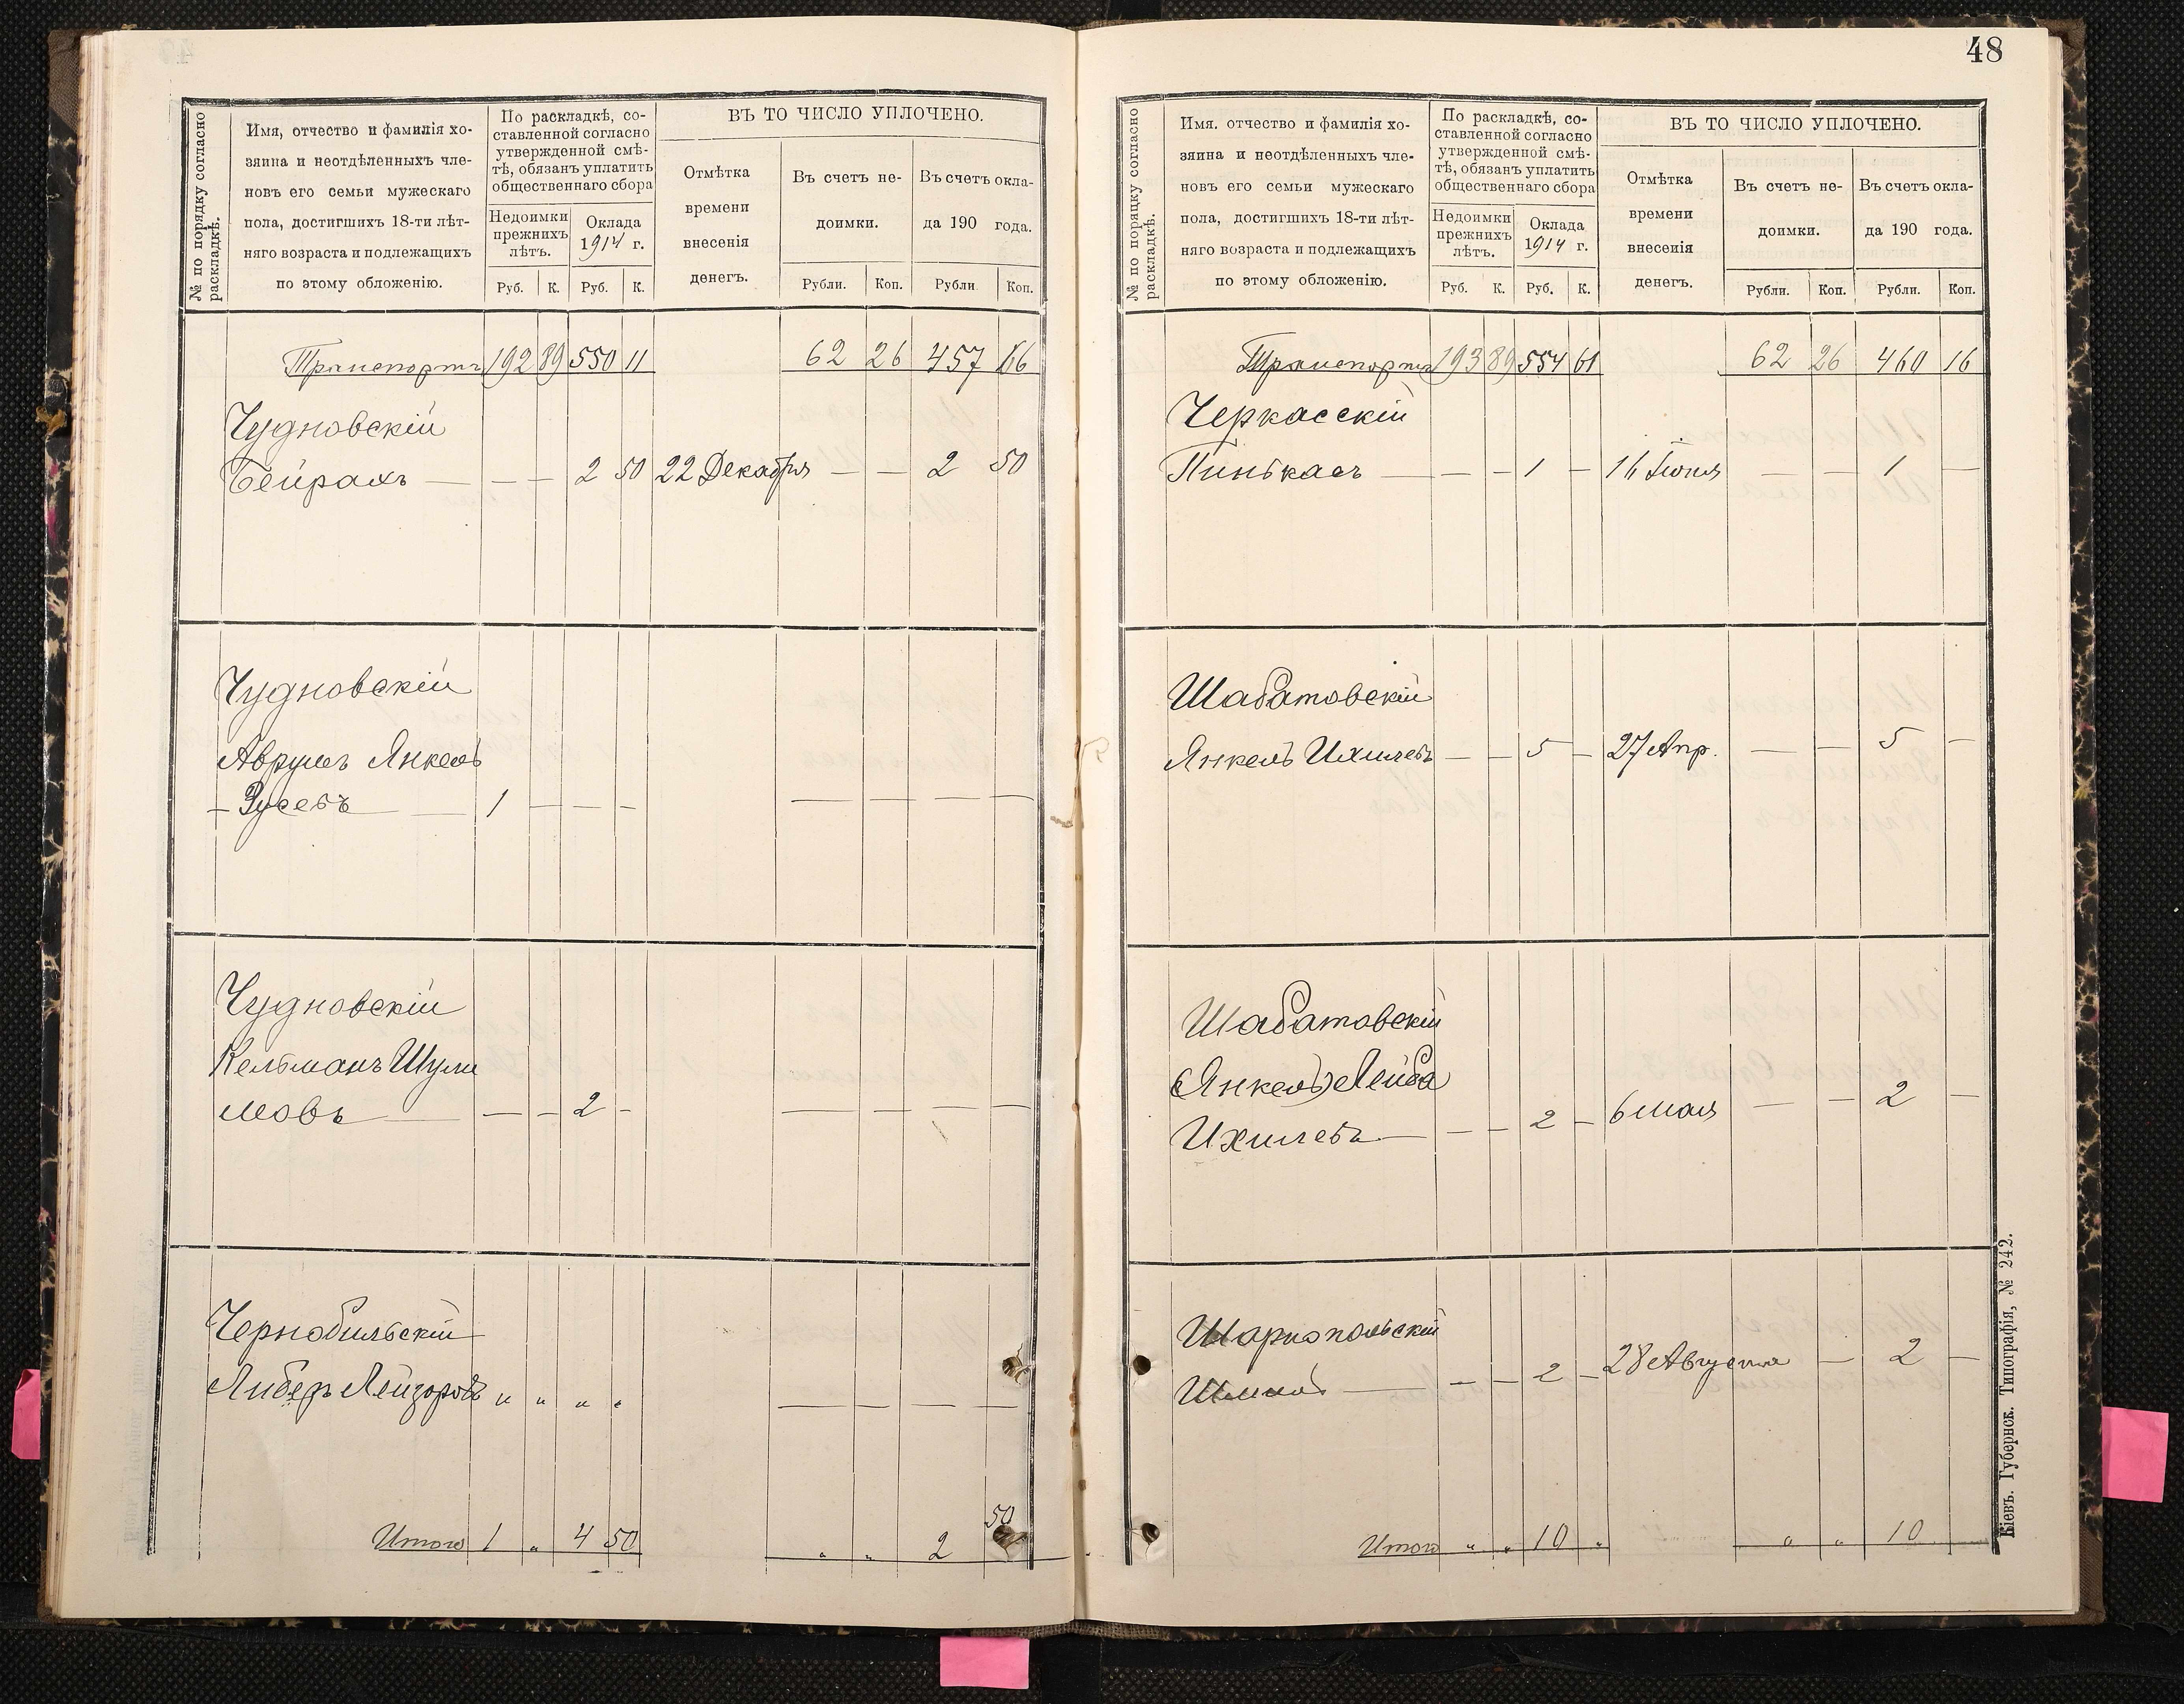 № по порядку согласно
раскладкѣ.
Имя, отчество и фамилія хо-
зяина и неотдѣленныхъ чле-
новъ его семьи мужескаго
пола, достигшихъ 18-ти лѣт-
няго возраста и подлежащихъ
по этому обложенію.
По раскладкѣ, со-
ставленной согласно
утвержденной смѣ-
тѣ, обязанъ уплатить
общественнаго сбора
Недоимки
прежнихъ
лѣтъ.
Оклада
1914 г.
Руб. К. Руб. К.
ВЪ ТО ЧИСЛО УПЛОЧЕНО.
Отмѣтка
времени
внесенія
денегъ.
Въ счетъ не-
доимки.
Въ счетъ окла-
да 190 года.
Рубли. Коп. Рубли Коп.
Транспортъ 192 89 550 11 62 26 457 66
Чудновскій
Бейрахъ — — — 2 50 22 Декабря — — 2 50
Чудновскій
Аврумъ Янкель
- Зусевъ — 1 — — — — — — —
Чудновскій
Кельманъ Шули
мовъ — — — 2 - — — — —
Чернобильскій
Либеръ Лейзоровъ " " " " — — — —
Итого 1 " 4 50 " " 2 50
48
№ по порядку согласно
раскладкѣ.
Имя. отчество и фамилія хо-
зяина и неотдѣленныхъ чле-
новъ его семьи мужескаго
пола, достигшихъ 18-ти лѣт-
няго возраста и подлежащихъ
по этому обложенію.
По раскладкѣ, со-
ставленной согласно
утвержденной смѣ-
тѣ, обязанъ уплатить
общественнаго сбора
Недоимки
прежнихъ
лѣтъ.
Оклада
1914 г.
Руб. К. Руб. К.
ВЪ ТО ЧИСЛО УПЛОЧЕНО.
Отмѣтка
времени
внесенія
денегъ.
Въ счетъ не-
доимки.
Въ счетъ окла-
да 190 года.
Рубли. Коп. Рубли. Коп.
Транспортъ 193 89 554 61 62 26 460 16
Черкасскій
Пинькасъ — — - 1 — 16 Іюня — — 1 —
Шабатовскій
Янкель Ихилевъ — — 5 — 27 Апр. — — 5 —
Шабатовскій
(Янкель) Лейба
Ихилевъ — — — 2 — 6 Мая — — 2 —
Шарнопольскій
— — — 2 — 28 Августа — 2 —
Итого " " 10 " " " 10
Кіевъ. Губернск. Типографія, № 242.